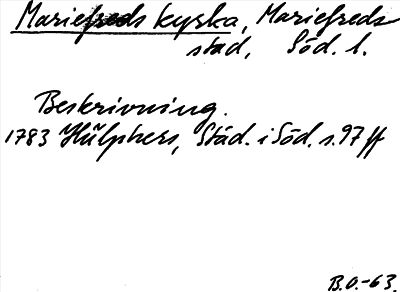 Mariefreds kyrka, Mariefreds
stad, Söd. l.
Beskrivning.
1783 Hülphers, Städ. i Söd. s. 97 ff
B.O.-63.